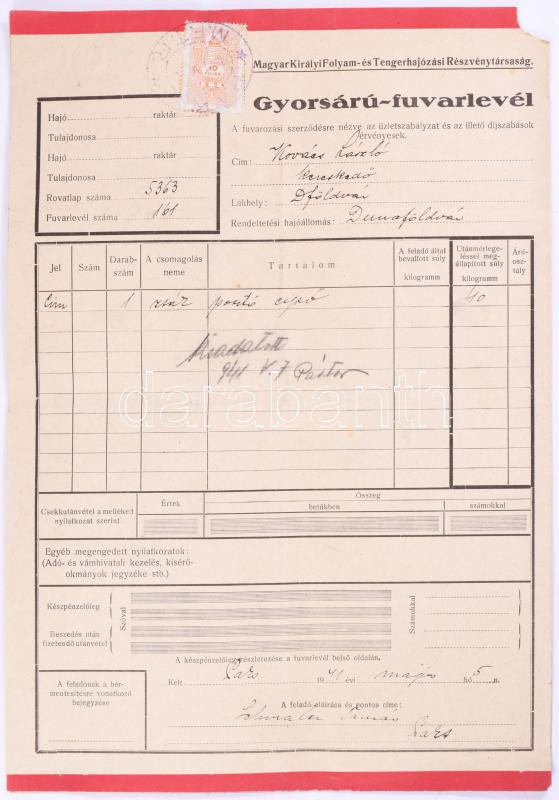 Magyar Királyi Folyam- és Tengerhajózási Részvénytársaság.
Gyorsárú-fuvarlevél
A fuvarozási szerződésre nézve az üzletszabályzat és az illető díjszabások
érvényesek.
Hajó raktár
Tulajdonosa
Hajó raktár
Tulajdonosa
Rovatlap száma 5363
Fuvarlevél száma 161
Cím: Kovács László
kereskedő
Lakhely: Dföldvár
Rendeltetési hajóállomás: Dunaföldvár
Jel
Szám
Darab-
szám
A csomagolás
neme
Tartalom
A feladó által
bevallott súly
kilogramm
Utánmérlege-
léssel meg-
állapított súly
kilogramm
Árú-
osz-
tály
Cím 1 zsák 40
Kiadatott
941 V. 7 Pásztor
Csekkutánvétel a mellékelt
nyilatkozat szerint
Érték
Összeg
betűkben
számokkal
Egyéb megengedett nyilatkozatok:
(Adó- és vámhivatali kezelés, kísérő-
okmányok jegyzéke stb.)
Készpénzelőleg
Beszedés után
fizetendő utánvétel
Szóval
Számokkal
A készpénzelőleg részletezése a fuvarlevél belső oldalán.
Kelt 1941 évi május hó 5 n.
A feladónak a bér-
mentesítésre vonatkozó
bejegyzése
A feladó aláírása és pontos címe:
darabanth